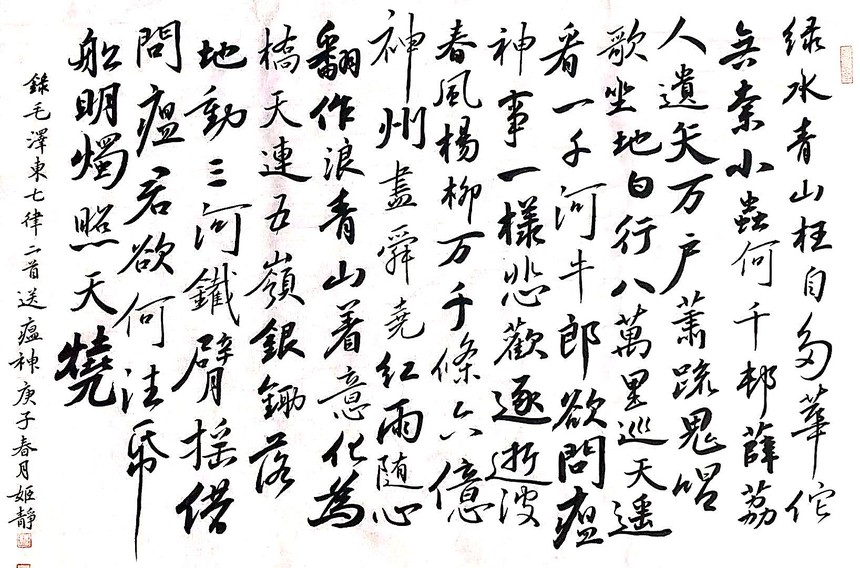 绿水青山枉自多華佗
無奈小蟲何千邨薜荔
人遺矢万户蕭疏鬼唱
歌坐地日行八萬里巡天遥
看一千河牛郎欲問瘟
神事一樣悲歡逐逝波
春風楊柳万千條六億
神州盡舜堯紅雨随心
翻作浪青山着意化為
橋天連五嶺銀鋤落
地動三河鐵臂摇借
問瘟君欲何往帋
船明燭照天燒
錄毛澤東七律二首送瘟神庚子春月姬靜